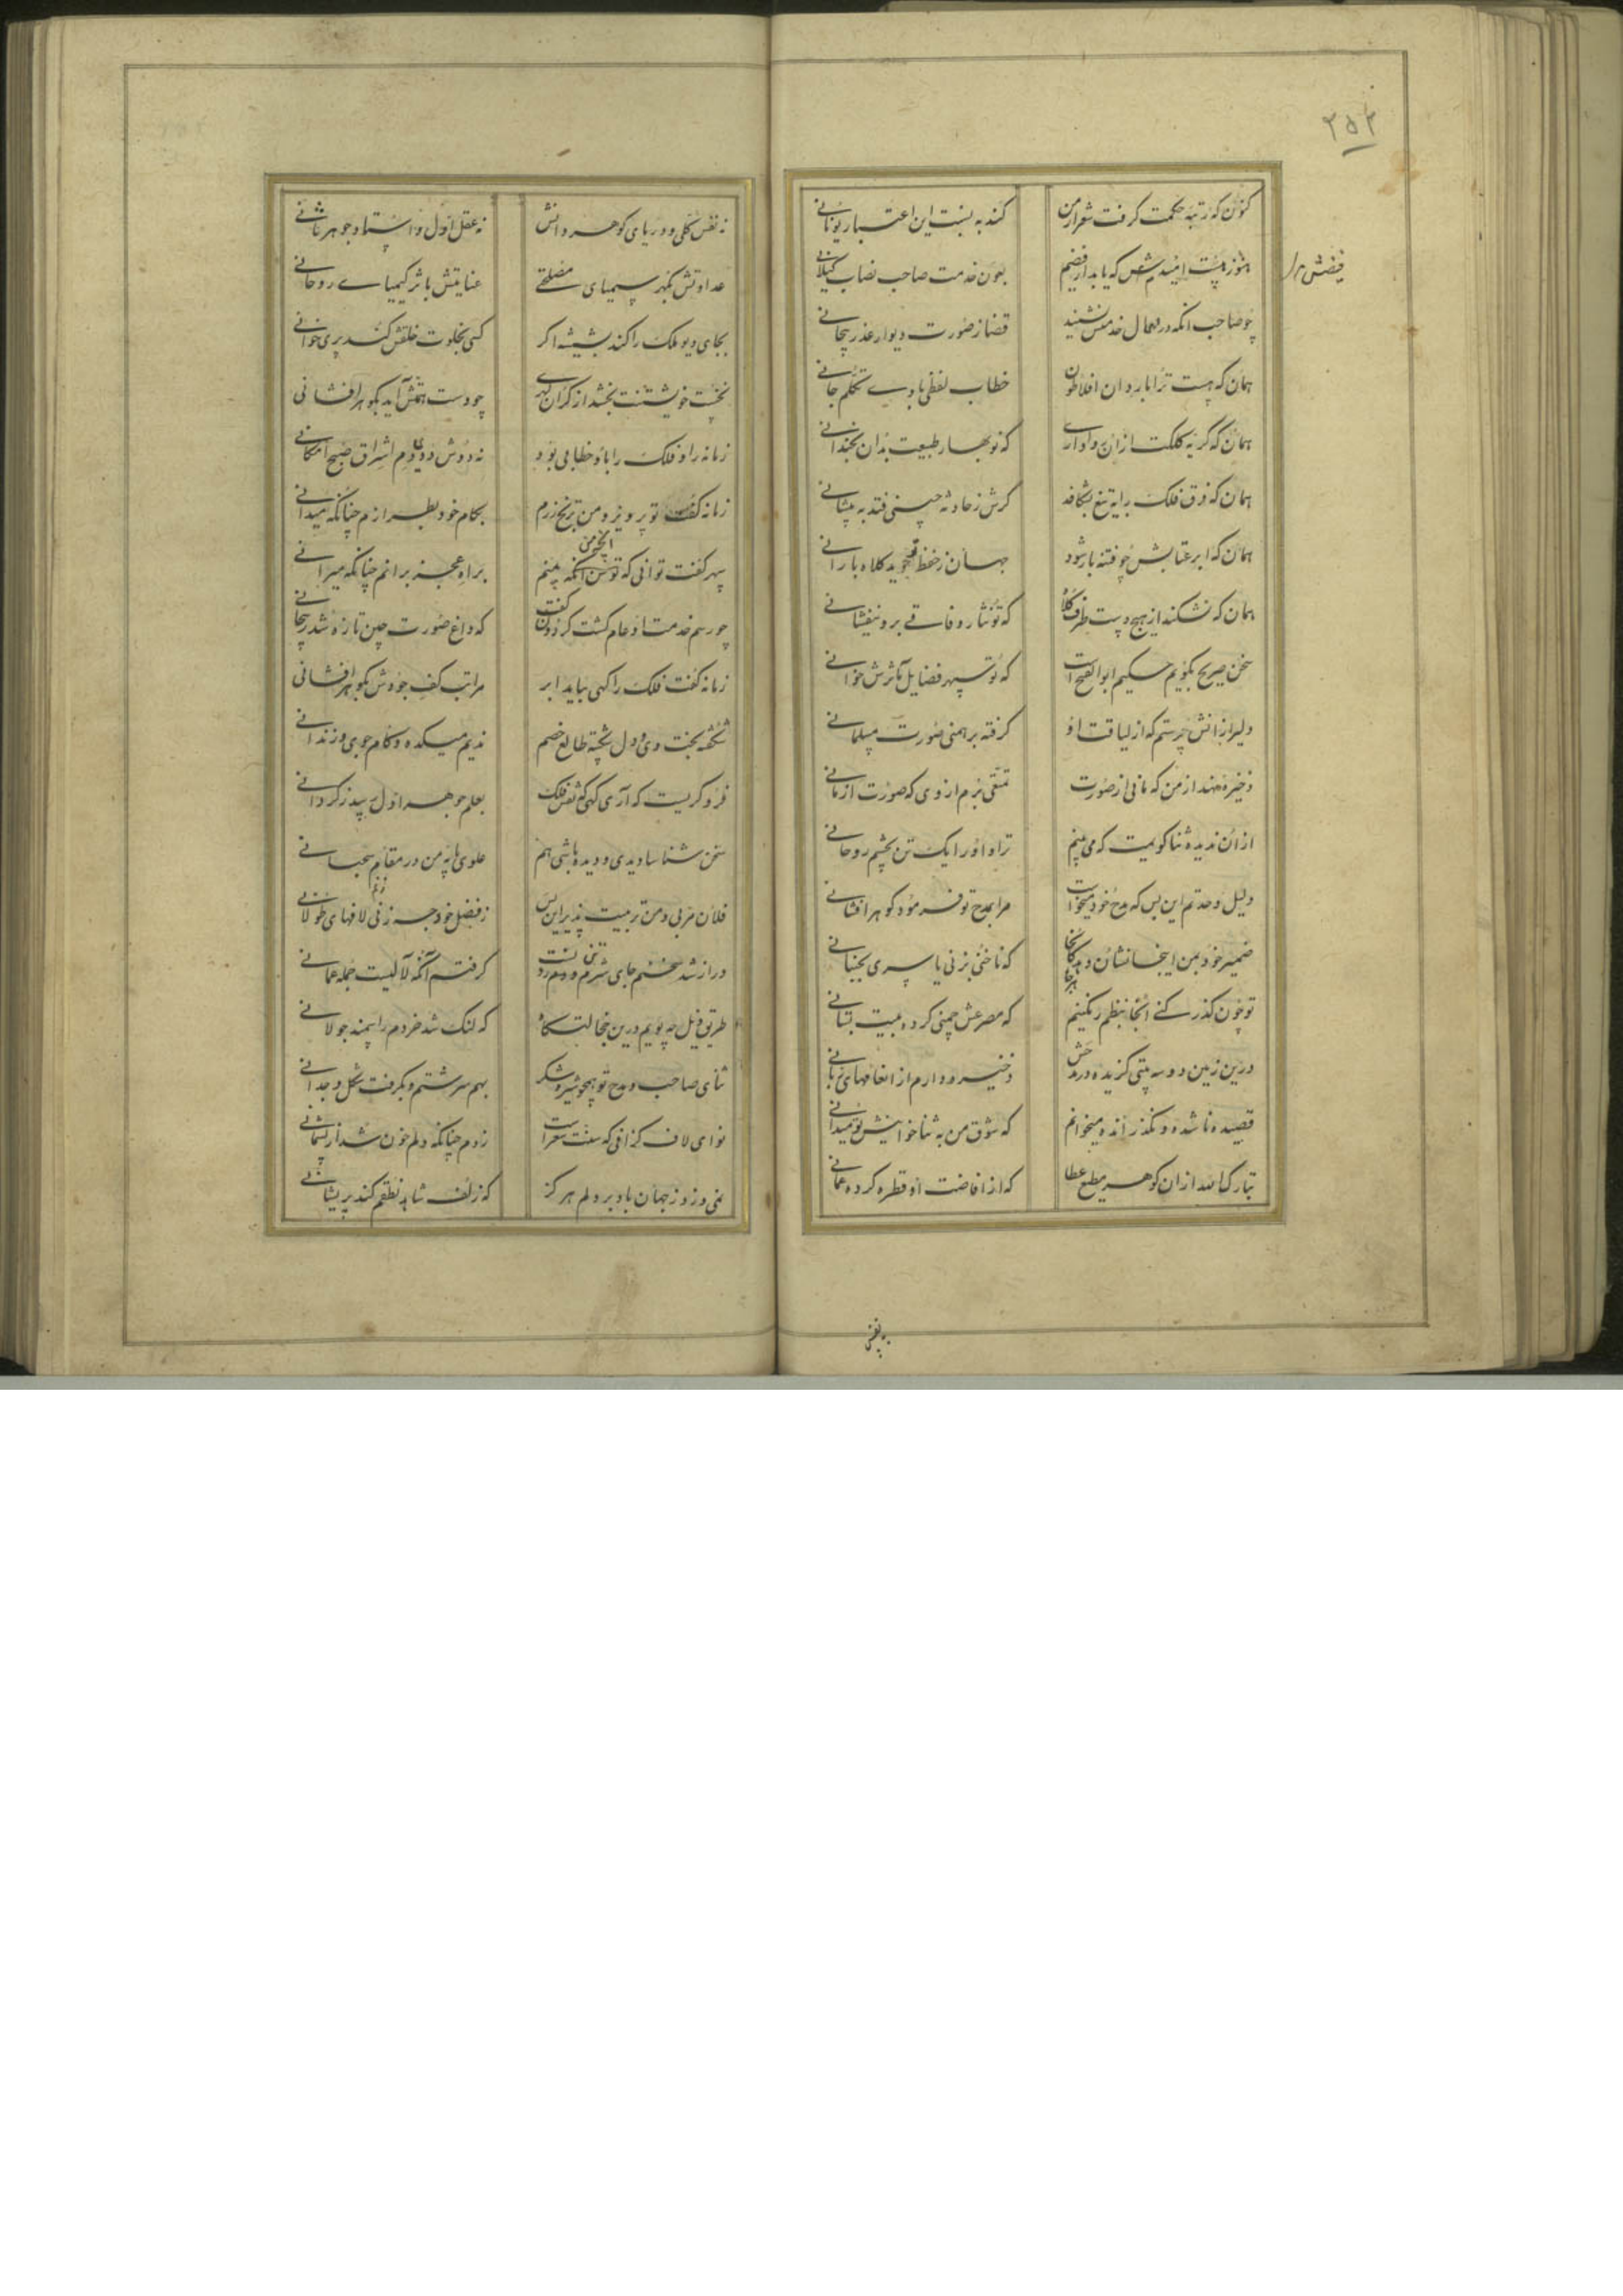 ۲۵۲
کنون که رتبه حکمت گرفت شعر از من
کند به نسبت این اعتبار یونانی
هنوز هست امیدم که یابد از فیضم
بعون خدمت صاحب نصاب گیلانی
چو صاحب آنکه در
قضا ز صورت دیوار عذر بیجانی
همان که هست ترا با روان افلاطون
خطاب لفظی با وی تکلم جانی
همان که گریه کلکت ازان روا داری
که نوبهار طبیعت بدان بخندانی
همان که فرق فلک را به تیغ بشکافد
گرش ز حادثه چینی فتد به پیشانی
همان که ابر عتابش چو فتنه بار شود
جهان ز حفظ تو جوید کلاه بارانی
همان که نشکند از هیچ دست طرف کلاه
که تو نثار وفاقی برو نیفشانی
سخن صریح بگویم حکیم ابوالفتح است
که تو سپهر فضایل مآثرش خوانی
دلیر ازانش پرستم که از لیاقت او
گرفته برهمنی صورت مسلمانی
ذخیره نهد از من که مانی از صورت
تمتعی برم از وی که صورت از مانی
از ان ندیده ثنا گویمت که می بینم
ترا و او را یک تن بچشم روحانی
دلیل وحدتم این بس که مدح خود میخواست
مرا بمدح تو فرمود گوهر افشانی
ضمیر خود بمن اینجا نشان دهد
که ناخنی بزنی یا سری بجنبانی
تو چون گذر کنی آنجا بنظم رنگینم
که مصرعش چمنی کرده بیت بستانی
درین زمین دو سه بیتی گزیده در مدحش
ذخیره دارم از انعامهای ربانی
قصیده ناشده و نگذرانده میخوانم
که شوق من به ثنا خوانیش تو میدانی
تبارک الله ازان گوهر مطلع عطا
که از افاضت او قطره کرده عمانی
نه نفس کلی و دریای گوهر دانش
نه عقل اول و استاد جوهر ثانی
عداوتش بگهر سیمیای مصلحتی
عنایتش باثر کیمیای روحانی
بجای دیو ملک را کند بشیشه اگر
کسی بخلوت خلقش کند پری خوانی
نخست خویشتنت بخشد از گران گهری
چو دست همتش آید بگوهر افشانی
زمانه را و فلک را باو خطابی بود
نه دوش دی و دم اشراق صبح امکانی
زمانه گفت تو پرویز و من ترنج زرم
بکام خود بطرازم چنانکه میدانی
سپهر گفت توانی که توسن انجم
براه عجز برانم چنانکه میرانی
چو رسم خدمت او عام گشت گردون گفت
که داغ صورت چین تازه شد ز بیجانی
زمانه گفت فلک را کهی بیاید ابر
مراتب کف جودش بگوهر افشانی
شکفته بخت وی و دل شکسته طالع خصم
ندیم میکده و کام جوی و زندانی
فرو گریست که آری گهی که نفس فلک
بعلم جوهر اول رسید ز گردانی
سخن شناسا دیدی و دیده باشی هم
علوی پایه من در مقام سحبانی
فلان مربی و من تربیت پذیر این بس
ز فضل خود چه زنم لافهای طولانی
دراز شد سخنم جای شرم
گرفتم آنکه لآلیست جمله عمانی
طریق ذیل چه پویم درین خجالتگاه
که لنگ شد خردم را سمند جولانی
ثنای صاحب و مدح تو همچو شیر و شکر
بهم سرشتم و بگرفت شکل وجدانی
نوای لاف گزافی که سنت شعراست
زدم چنانکه دلم خون شد از پشیمانی
نمی وزد ز جهان باد بر دلم هرگز
که زلف شاهد نطقم کند پریشانی